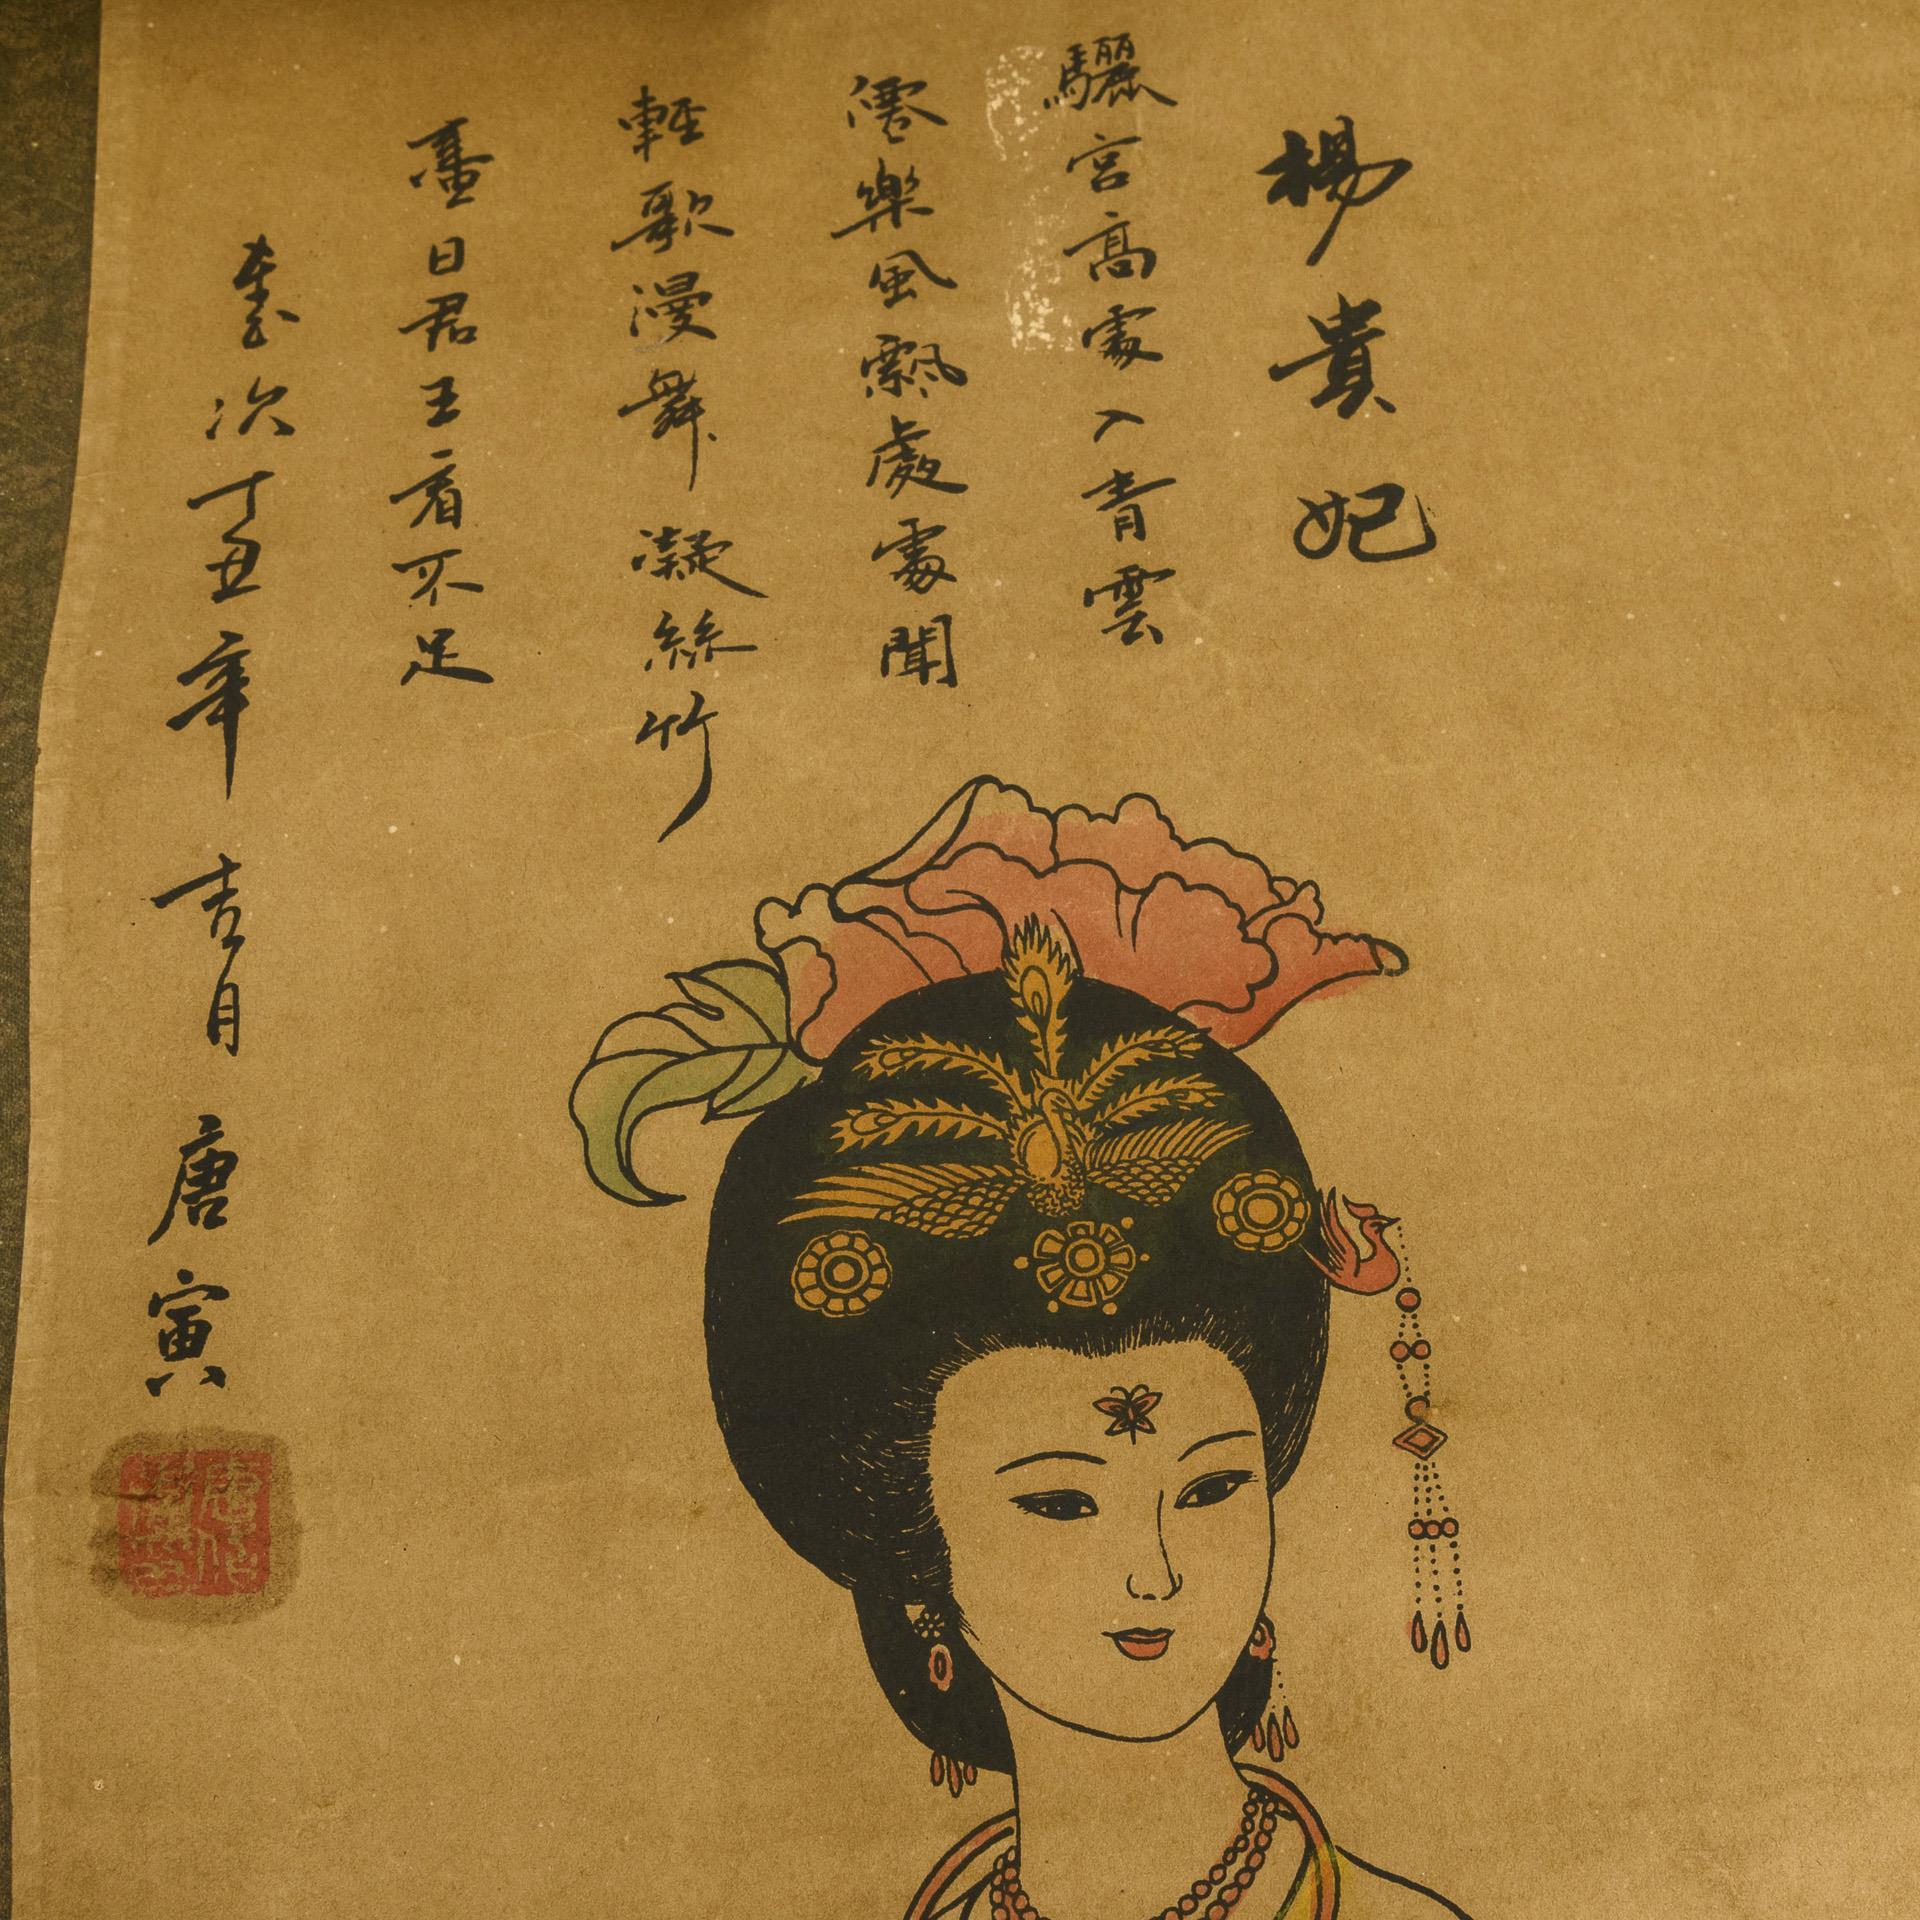 楊貴妃
驪宮高處入青雲
僊樂風飄處處聞
輕歌漫舞凝絲竹
盡日君王看不足
次丁丑年吉月唐寅